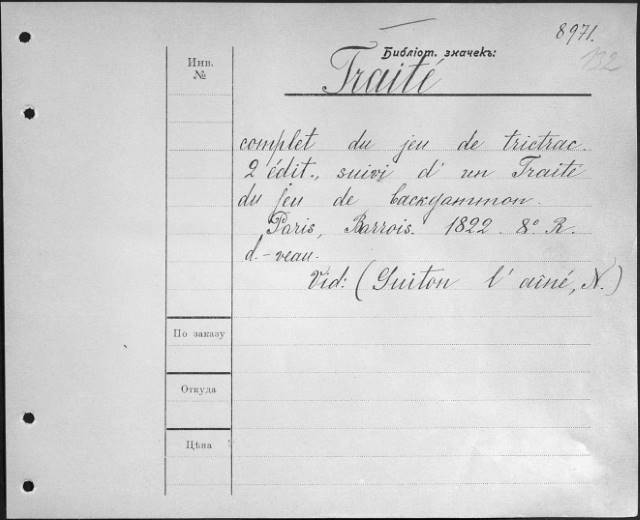 8971.
132
Библіот. значекъ:
Инв.
№
Traité
complet du jeu de trictrac.
2 édit., suivi d'un Traité
du jeu de backgammon.
Paris, Barrois. 1822. 8° R.
d.-veau.
Vid: (Guiton l'aîné, N.)
По заказу
Откуда
Цѣна